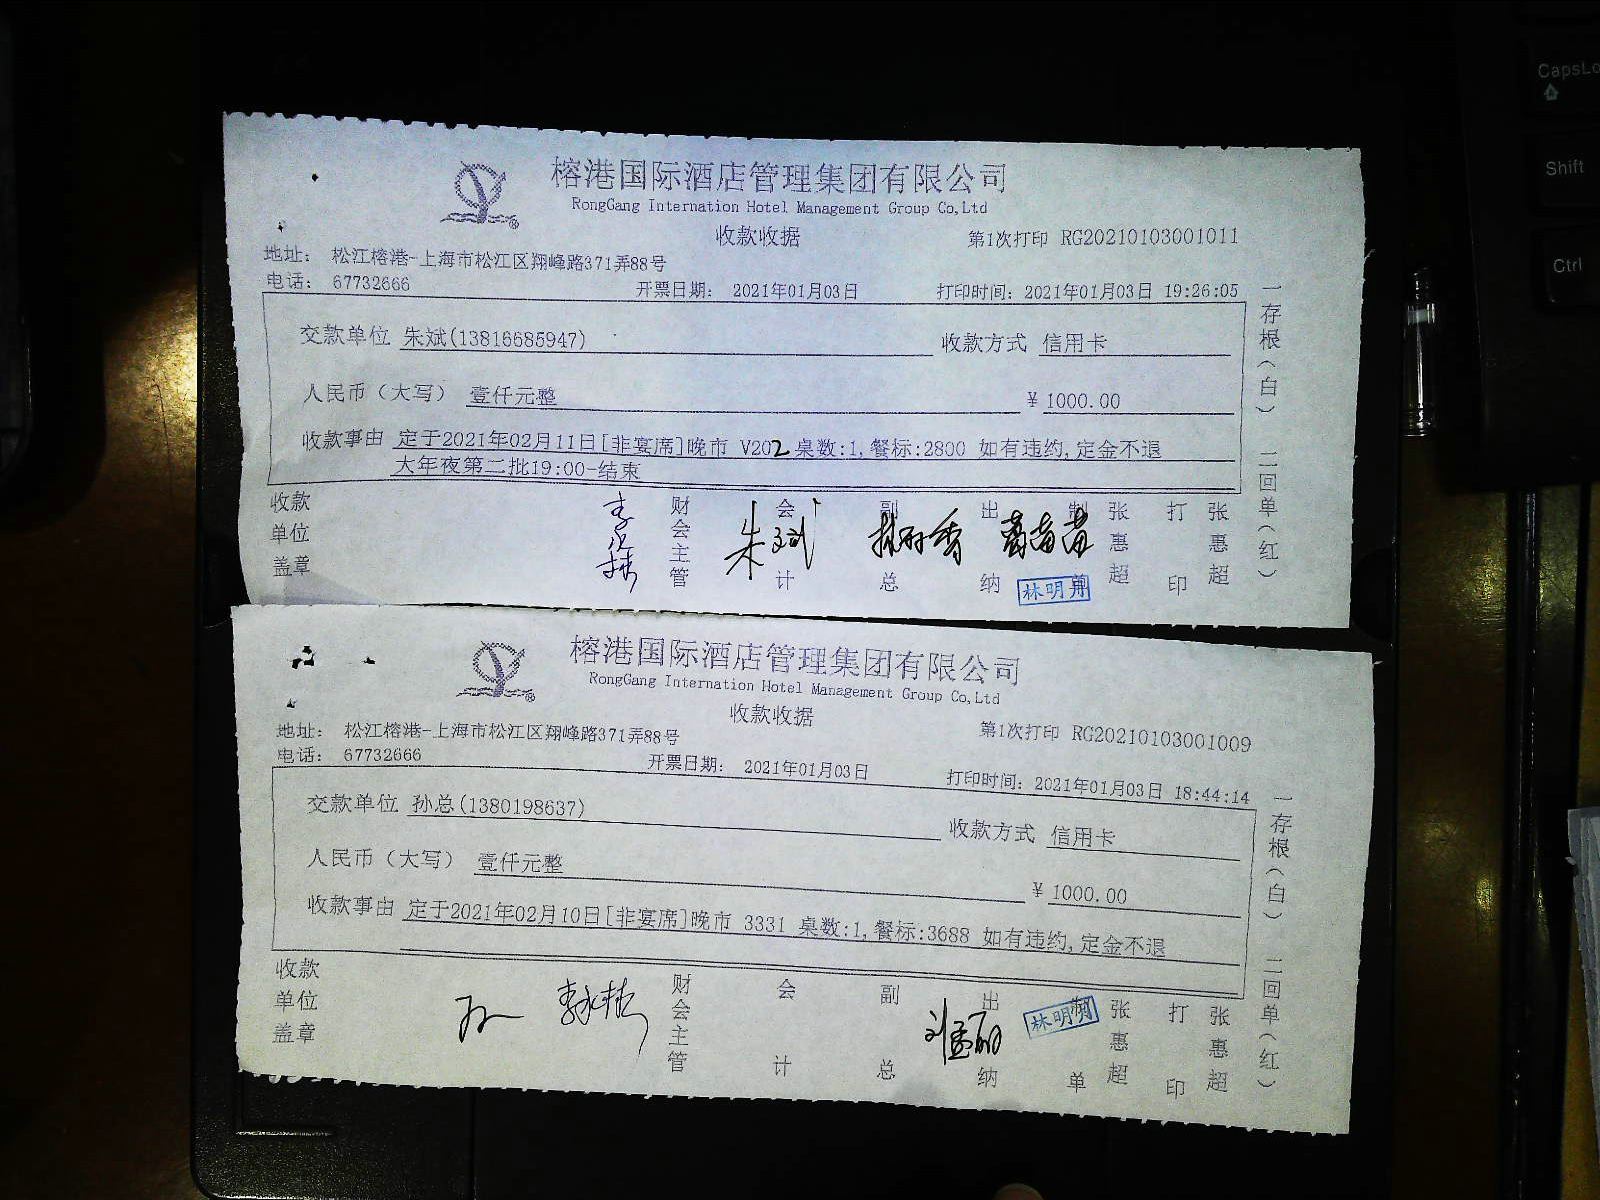 榕港国际酒店管理集团有限公司
RongGang Internation Hotel Management Group Co,Ltd
收款收据
第1次打印 RG20210103001011
地址： 松江榕港-上海市松江区翔峰路371弄88号
电话： 67732666
开票日期： 2021年01月03日
打印时间：2021年01月03日 19:26:05
交款单位 朱斌(13816685947)
收款方式 信用卡
人民币（大写） 壹仟元整
¥ 1000.00
收款事由 定于2021年02月11日[非宴席]晚市 V202 桌数:1,餐标:2800 如有违约,定金不退
大年夜第二批19:00-结束
收款单位盖章
财会主管
会计
朱斌
副总
出纳
制单
林明明
张惠超
打印
张惠超
一存根（白） 二回单（红）
榕港国际酒店管理集团有限公司
RongGang Internation Hotel Management Group Co,Ltd
收款收据
第1次打印 RG20210103001009
地址： 松江榕港-上海市松江区翔峰路371弄88号
电话： 67732666
开票日期： 2021年01月03日
打印时间：2021年01月03日 18:44:14
交款单位 孙总(1380198637)
收款方式 信用卡
人民币（大写） 壹仟元整
¥ 1000.00
收款事由 定于2021年02月10日[非宴席]晚市 3331 桌数:1,餐标:3688 如有违约,定金不退
收款单位盖章
财会主管
会计
副总
出纳
制单
林明明
张惠超
打印
张惠超
一存根（白） 二回单（红）
CapsLo
Shift
Ctrl